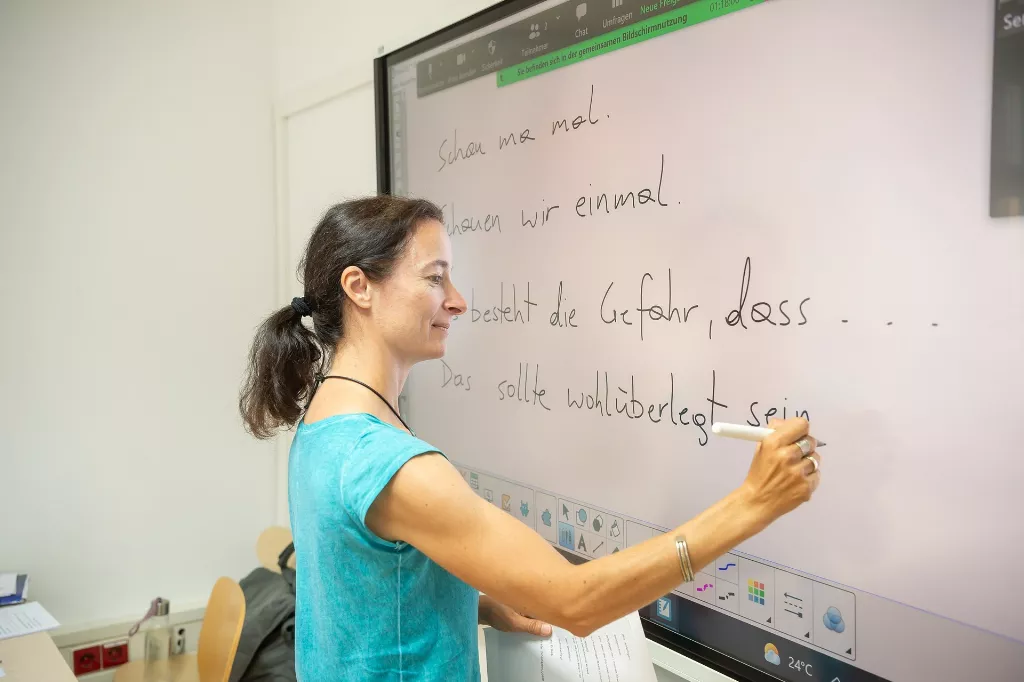 Teilnehmer
Chat
Umfragen
Neue Freig
01:18:00
Sie befinden sich in der gemeinsamen Bildschirmnutzung
Se
Schau ma mal.
chauen wir einmal.
s besteht die Gefahr, dass . . . .
Das sollte wohlüberlegt sein
A
24°C